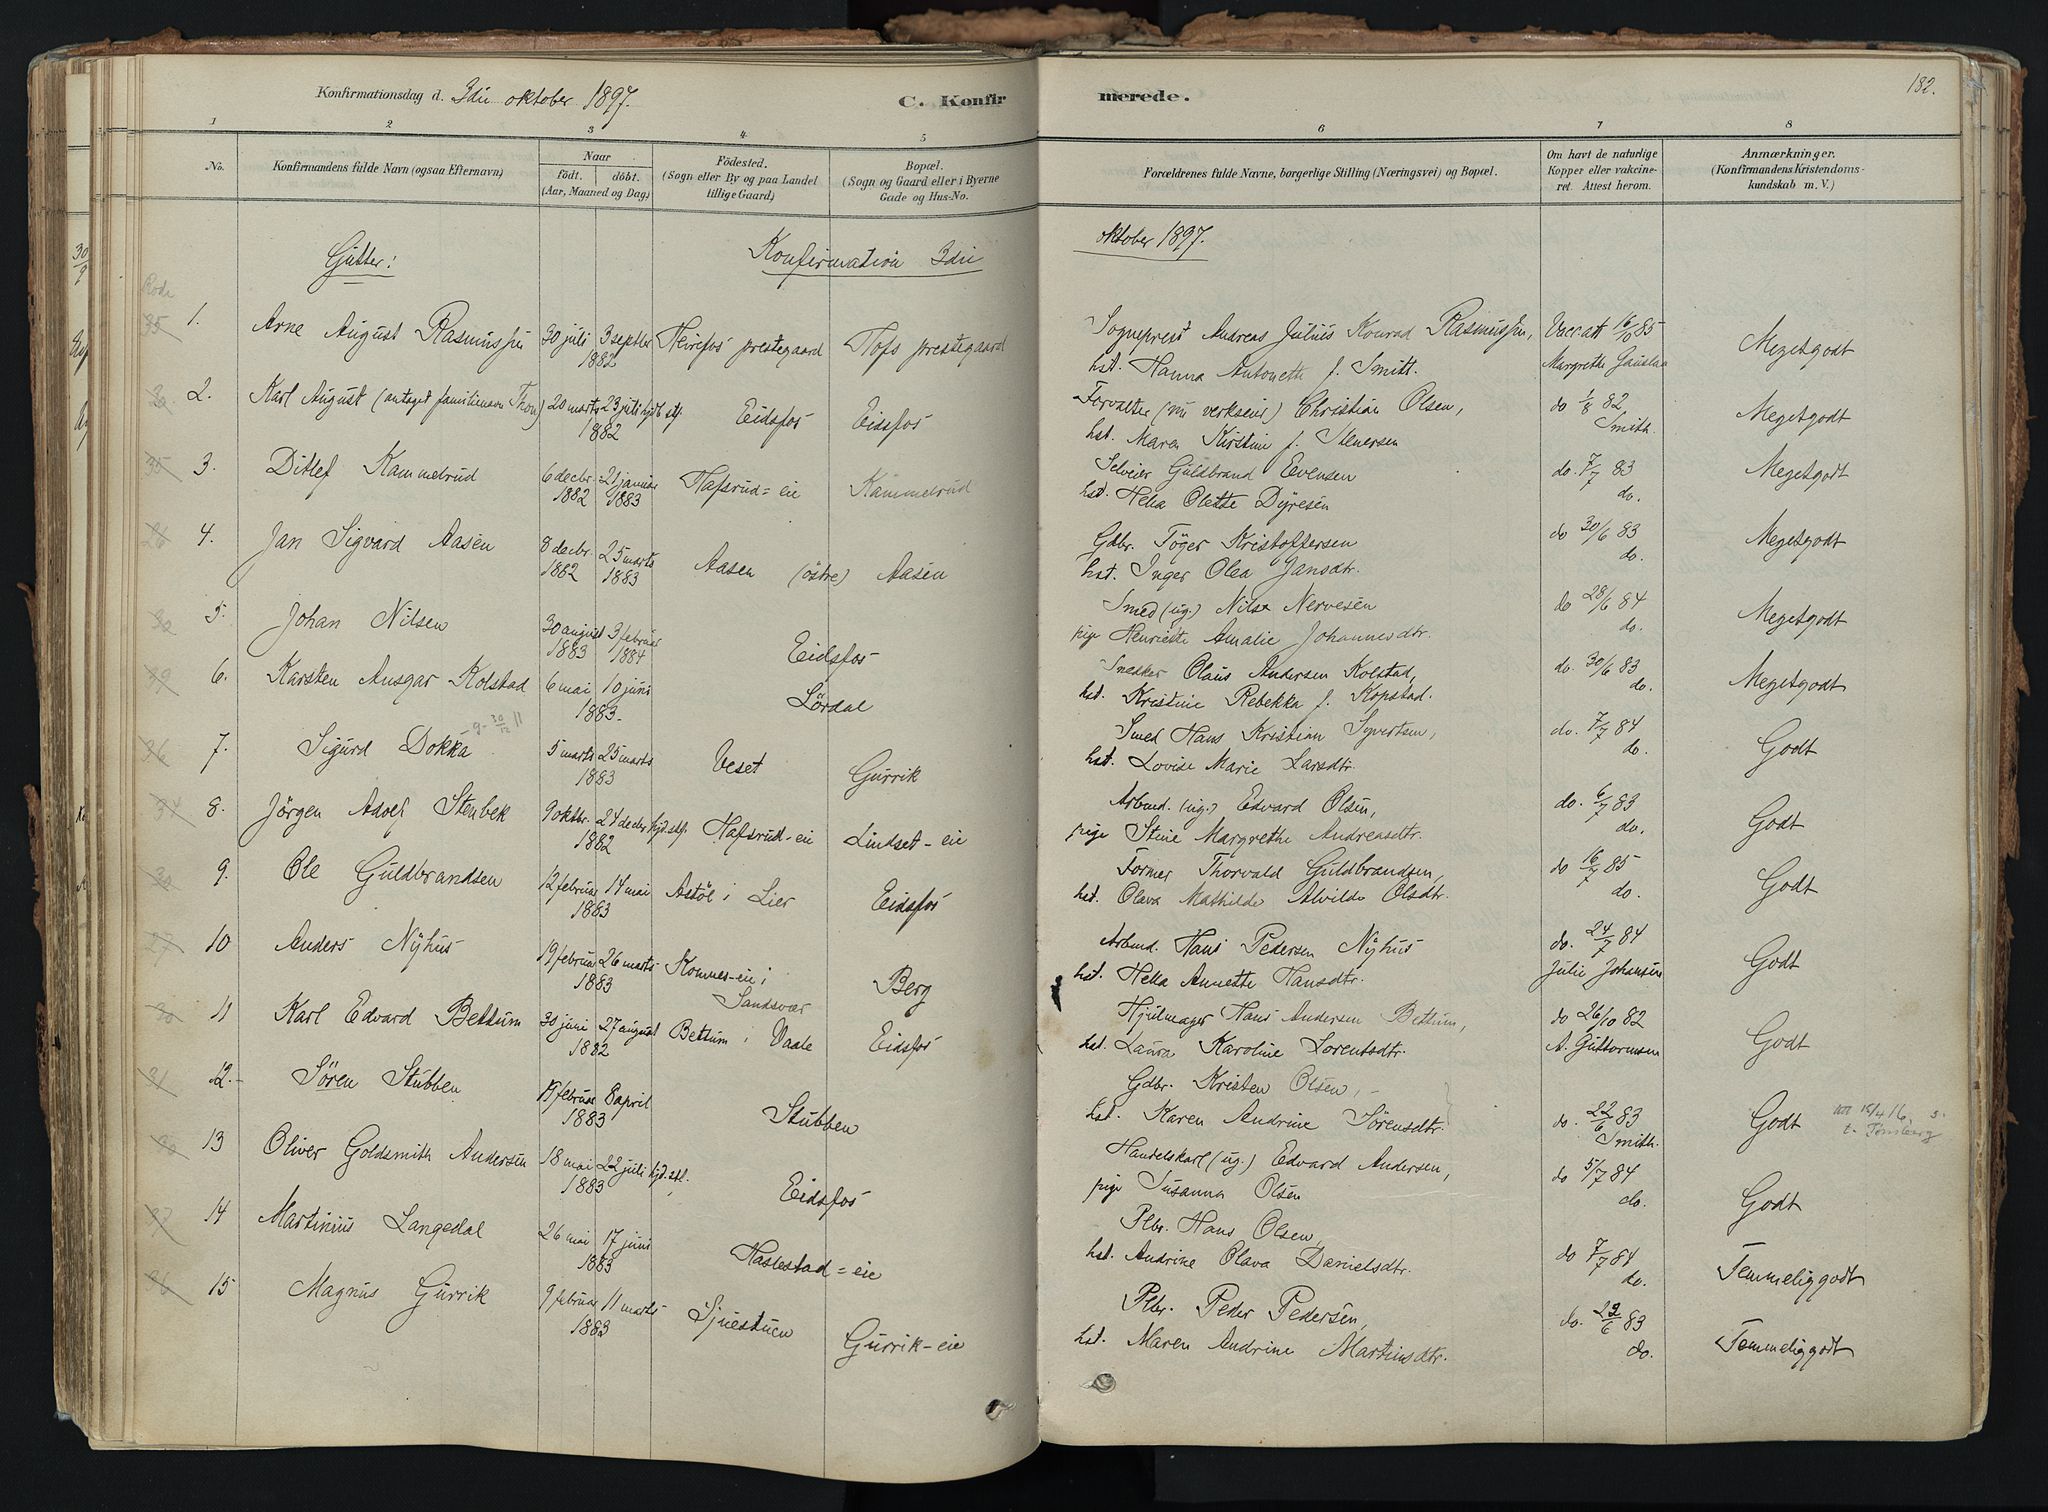 182.
Konfirmationsdag d. 3die oktober 1897.
C. Konfirmerede.
1 2 3 4 5 6 7 8
No.
Konfirmandens fulde Navn (ogsaa Efternavn)
Naar
födt. döbt.
(Aar, Maaned og Dag)
Födested.
(Sogn eller By og paa Landet
tillige Gaard)
Bopæl.
(Sogn og Gaard eller i Byerne
Gade og Hus-No.
Forældrenes fulde Navne, borgerlige Stilling (Næringsvei) og Bopæl.
Om havt de naturlige
Kopper eller vakcine-
ret. Attest herom.
Anmærkninger.
(Konfirmandens Kristendoms-
kundskab m. V.)
Gutter: Konfirmation 3die oktober 1897.
Rode
35 1. Arne August Rasmussen 30 juli 3 septbr 1882 prestegaard Hofs prestegaard
Sogneprest Andreas Julius Konrad Rasmussen, Vacc.att 16/6 85 Megetgodt
hst. Hanna Antonette f. Smitt. Margrethe
2. Karl August (antaget familienavn Thon) 20 marts 23 juli hjdt stf 1882 Eidsfos Eidsfos
Forvalter (nu verkseier) Christian Olsen, do 1/8 82 Smith. Megetgodt
hst. Maren Kirstine f. Stenersen
35 3. Ditlef Kammelrud 6 decbr. 1882 21 januar 1883 Hafsrud=eie Kammelrud
Selveier Guldbrand Evensen do. 7/7 83 do. Megetgodt
hst. Helia Olette Dyresen
26 4. Jan Sigvard Aasen 8 decbr. 1882 25 marts 1883 Aasen (östre) Aasen
Gdbr. Töger Kristoffersen do 30/6 83 do. Megetgodt
hst. Inger Olea Jansdtr.
5. Johan Nilsen 30 august 1883 3 februar 1884 Eidsfos
Smed (ug.) Nils Nervesen do 28/6 84 do. Megetgodt
pige Henriette Amalie Johannesdtr.
6. Karsten Ansgar Kolstad 6 mai 10 juni 1883. Lördal
Snekker Olaus Andersen Kolstad, do. 30/6 83 do. Megetgodt
hst. Kristine Rebekka f. Kopstad.
7. Sigurd Dokka -g- 30/12 11 5 marts 25 marts 1883 Veset Gurrik
Smed Hans Kristian Syvertsen, do. 7/7 84 do. Godt
hst. Lovise Marie Larsdtr.
8. Jörgen Adolf Stenbek 9 oktbr. 24 decbr hjd.stf. 1882 Hafsrud-eie Lindset-eie
Arbmd. (ug.) Edvard Olsen, do. 6/7 83 do. Godt
pige Stine Margrethe Andreasdtr.
30 9. Ole Guldbrandsen 12 februar 14 mai 1883 Astöl i Lier Eidsfos
Former Thorvald Guldbrandsen, do 16/7 85 do. Godt
hst. Olava Mathilde Alvilde Olsdtr.
27 10 Anders Nyhus 19 februar 26 marts 1883 Komnes-eie i Sandsvær Berg
Arbmd. Hans Pedersen Nyhus do. 24/7 84 Julie Johansen Godt
hst. Helia Annette Hansdtr.
30 11 Karl Edvard Bettum 30 juni 27 august 1882 Bettum i Vaale Eidsfos
Hjulmager Hans Andersen Bettum, do 26/10 82 A. Guttormsen Godt
hst. Laura Karoline Lorentsdtr.
31 12. Sören Stubben 19 februar 8 april 1883 Stubben
Gdbr. Kristen Olsen, do. 22/6 83 Smith. Godt 15/4 16 t. Tønsberg
hst. Karen Andrine Sörensdtr.
13 Oliver Goldsmith Andersen 18 mai 22 juli hjd.stf. 1883 Eidsfos
Handelskarl (ug.) Edvard Andersen, do 5/7 84 do. Godt
pige Susanna Olsen
14 Martinius Langedal 26 mai 17 juni 1883 Haslestad=eie
Plbr. Hans Olsen, do 7/7 84 do. Temmeliggodt
hst. Andrine Olava Danielsdtr.
15 Magnus Gurrik 9 februar 11 marts 1883 Sjuestuen Gurrik-eie
Plbr. Peder Pedersen, do. 22/6 83 do. Temmeliggodt
hst. Maren Andrine Martinsdtr.